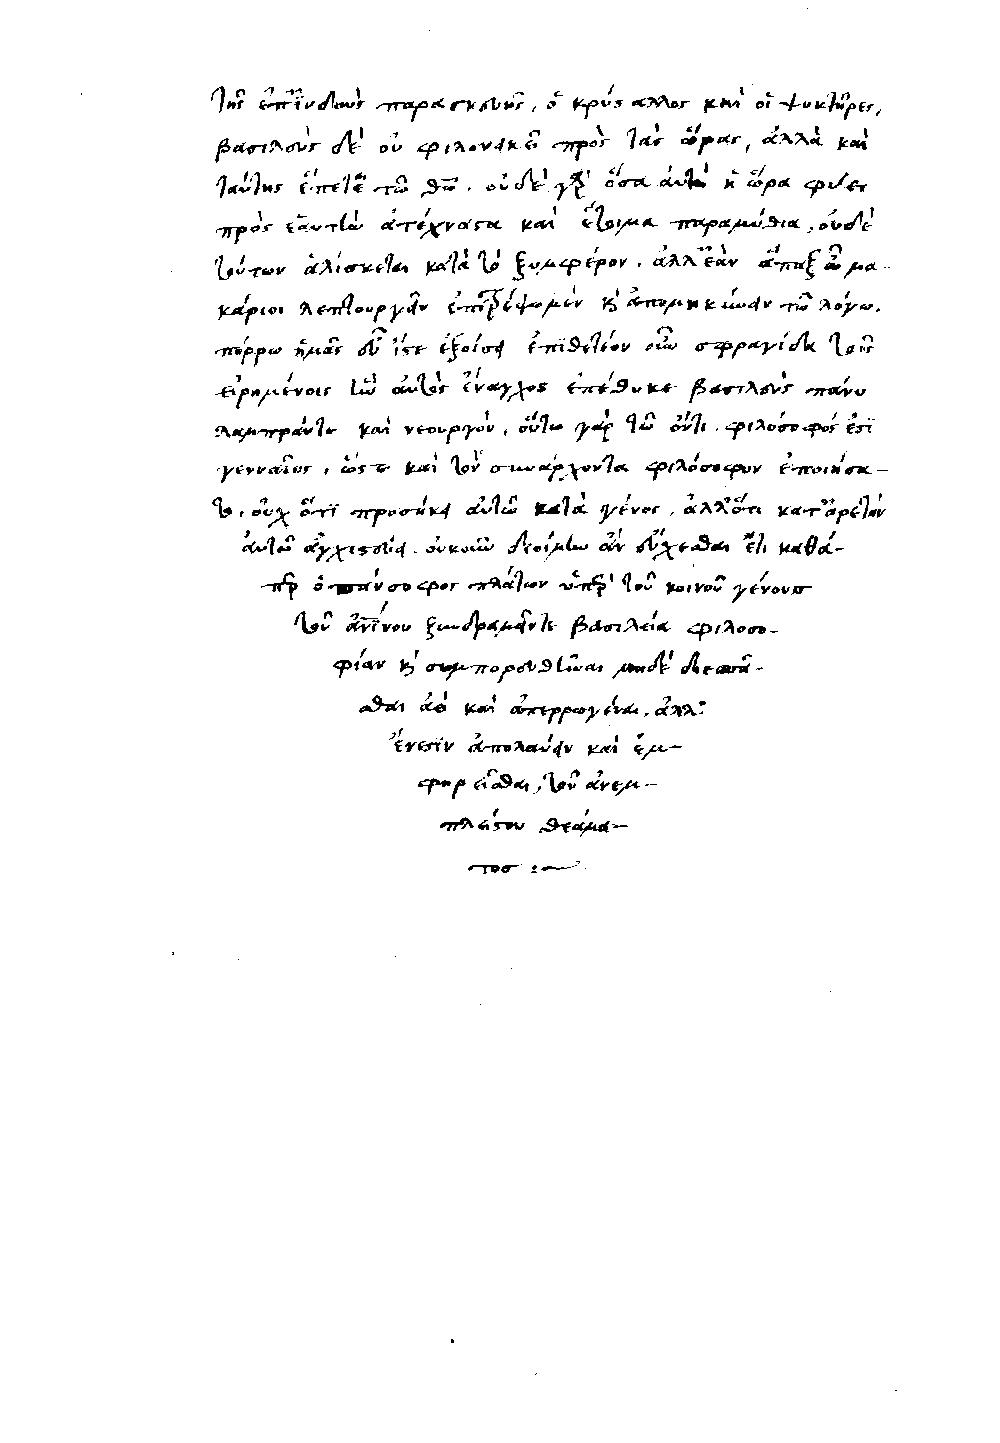 τῆς ἐπιτηδείους παρασκευῆς, ὁ κρύσταλλος καὶ οἱ ψυκτῆρες,
βασιλεὺς δὲ οὐ φιλονεικεῖ πρὸς τὰς ὥρας, ἀλλὰ καὶ
ταύτης ἕπεται τῷ θεῷ. οὐδὲ γὰρ ὅσα αὐτὴ ἡ ὥρα φύει
πρὸς ἑαυτὴν ἀτέχναστα καὶ ἕτοιμα παραμύθια, οὐδὲ
τούτων ἁλίσκεται κατὰ τὸ ξυμφέρον. ἀλλ' ἐὰν ἅπαξ ὦ μα-
κάριοι λεπτουργεῖν ἐπιτρέψωμεν καὶ ἀπομηκύνειν τῷ λόγῳ,
πόρρω ἡμᾶς εὖ ἴστε ἐξοίσει ἐπιθετέον οὖν σφραγῖδα τοῖς
εἰρημένοις ἣν αὐτὸς ἔναγχος ἐπέθηκε βασιλεὺς πάνυ
λαμπράν τε καὶ νεουργόν, οὕτω γὰρ τῷ ὄντι φιλόσοφός ἐστι
γενναῖος, ὥστε καὶ τὸν συνάρχοντα φιλόσοφον ἐποιήσα-
το, οὐχ ὅτι προσήκει αὐτῷ κατὰ γένος, ἀλλ' ὅτι κατ' ἀρετὴν
αὐτῷ ἀγχιστεύει. οὐκοῦν δεοίμην ἂν εὔχεσθαι ἔτι καθά-
περ ὁ πάνσοφος πλάτων ὑπὲρ τοῦ κοινοῦ γένους
τοῦ ἀνίνου ξυνδραμεῖν τε βασιλεία φιλοσο-
φίαν καὶ συμπορευθῆναι μηδὲ διεσπᾶ-
σθαι ἀεὶ καὶ ἀπερρωγέναι, ἀλλ'
ἔνεστιν ἀπολαύειν καὶ ἐμ-
φορεῖσθαι, τοῦ ἀνεμ-
πλήστου θεάμα-
τος :~